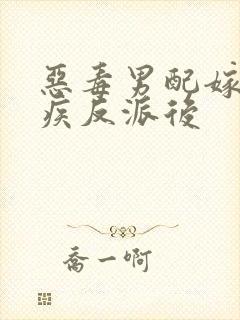 惡毒男配嫁
疾反派後
喬一啊